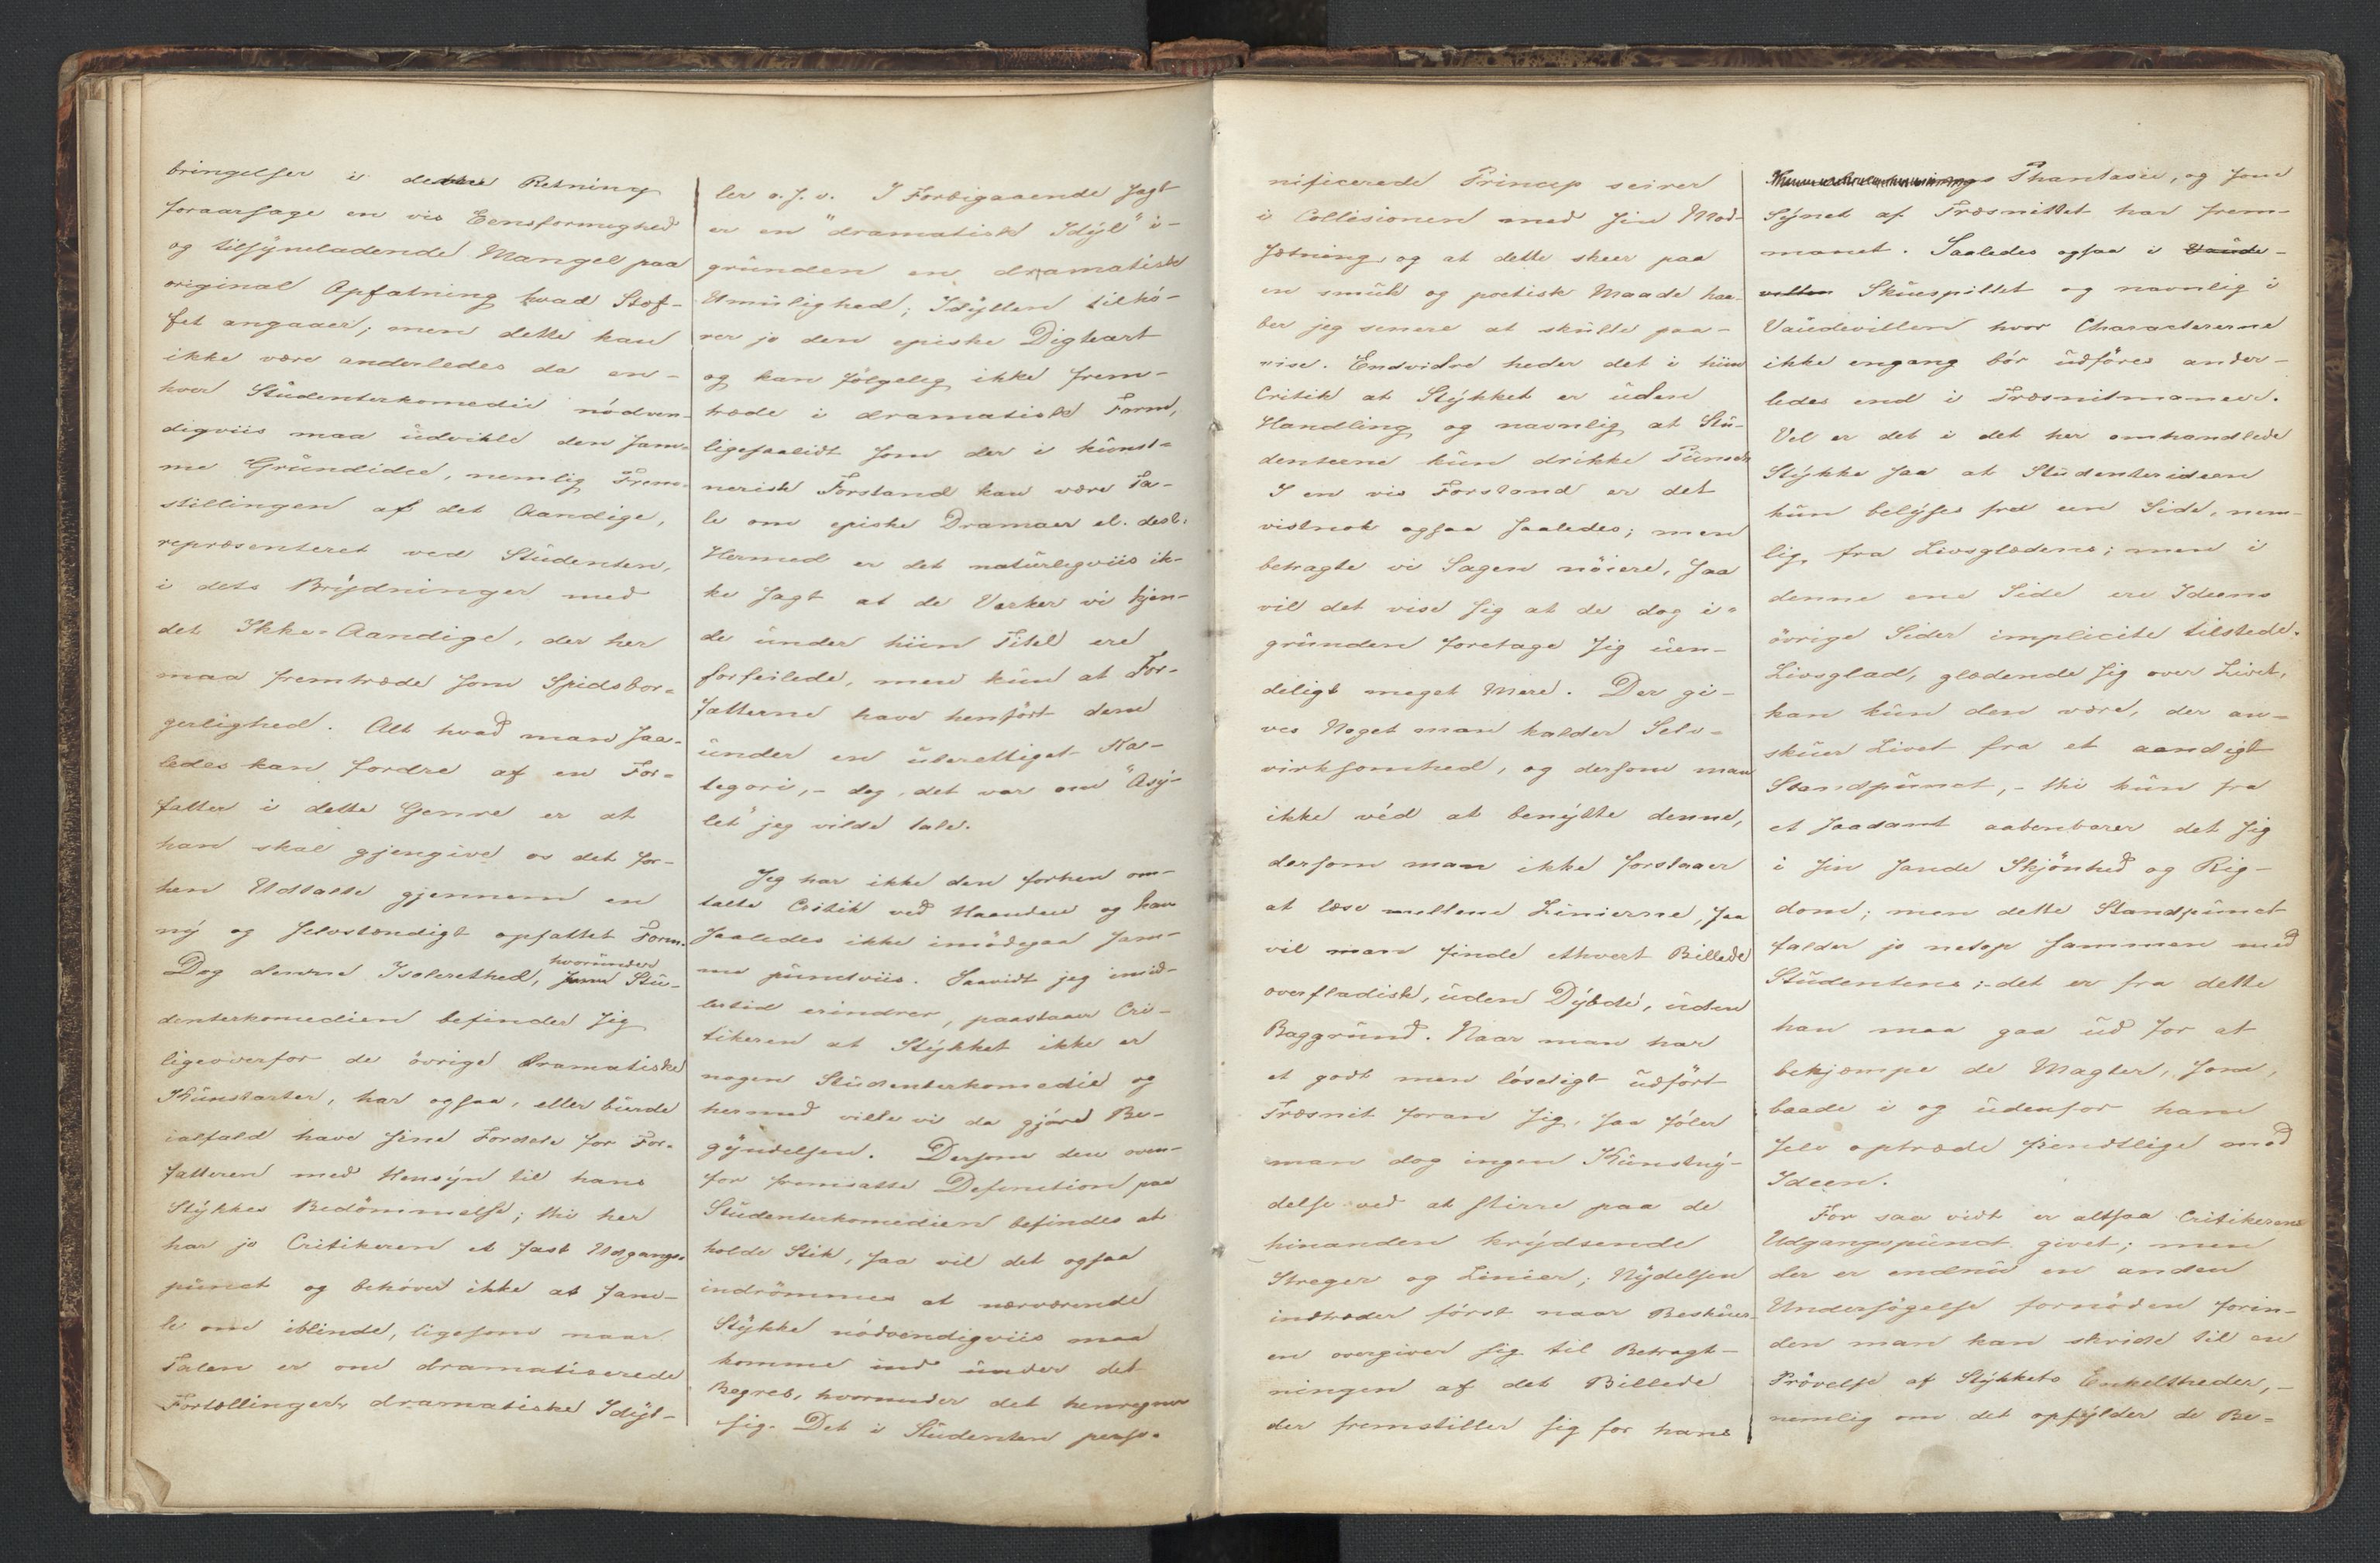 bringelser i denne Retning
foraarsage en vis Eensformighed
og tilsyneladende Mangel paa
original Opfatning hvad Stof-
fet angaaer; men dette kan
ikke være anderledes da en-
hver Studenterkomedie nödven-
digviis maa udvikle den sam-
me Grundidee, nemlig Frem-
stillingen af det Aandige,
repræsenteret ved Studenten,
i dets Brydninger med
det Ikke-Aandige, der her
maa fremtræde som Spidsbor-
gerlighed. Alt hvad man saa-
ledes kan fordre af en For-
fatter i dette Genre er at
han skal gjengive os det for-
hen Udtalte gjennem en
ny og selvstændigt opfattet Form.
hvorunder
Dog denne Isolerethed, som Stu-
denterkomedien befinder sig
ligeoverfor de övrige dramatiske
Kunstarter, har ogsaa, eller burde
ialfald have sine Fordele for For-
fatteren med Hensyn til hans
Stykkes Bedömmelse; thi her
har jo Critikeren et fast Udgangs-
punct og behöver ikke at fam-
le om iblinde, ligesom naar
Talen er om dramatiserede
Fortællinger, dramatiske Idyl-
ler o.s.v. I Forbigaaende sagt
er en "dramatisk Idyl" i-
grunden en dramatisk
Umulighed; Idyllen tilhö-
rer jo den episke Digteart
og kan fölgelig ikke frem-
træde i dramatisk Form,
ligesaalidt som der i kunst-
nerisk Forstand kan være Ta-
le om episke Dramaer el. desl:
Hermed er det naturligviis ik-
ke sagt at de Værker vi kjen-
de under hiin Titel ere
forfeilede, men kun at For-
fatterne have henfört dem
under en uberettiget Ka-
tegori, - dog, det var om "Asy-
let" jeg vilde tale.
Jeg har ikke den forhen om-
talte Critik ved Haanden og kan
saaledes ikke imödegaa sam-
me punctviis. Saavidt jeg imid-
lertid erindrer, paastaaer Cri-
tikeren at Stykket ikke er
nogen Studenterkomedie og
hermed ville vi da gjöre Be-
gyndelsen. Dersom den oven-
for fremsatte Definition paa
Studenterkomedien befindes at
holde Stik, saa vil det ogsaa
indrömmes at nærværende
Stykke nödvendigviis maa
komme ind under det
Begreb, hvorunder det henregner
sig. Det i Studenten perso-
nificerede Princip seirer
i Collisionen med sin Mod-
sætning og at dette skeer paa
en smuk og poetisk Maade haa-
ber jeg senere at skulle paa-
vise. Endvidre heder det i hiin
Critik at Stykket er uden
Handling og navnlig at Stu-
denterne kun drikke Punsch
I en vis Forstand er det
vistnok ogsaa saaledes; men
betragte vi Sagen nöiere, saa
vil det vise sig at de dog i-
grunden foretage sig uen-
deligt meget Mere. Der gi-
ves Noget man kalder Selv-
virksomhed, og dersom man
ikke véd at benytte denne,
dersom man ikke forstaaer
at læse mellem Linierne, saa
vil man finde ethvert Billede
overfladisk, uden Dybde, uden
Baggrund. Naar man har
et godt men löseligt udfört
Træsnit foran sig, saa föler
man dog ingen Kunstny-
delse ved at stirre paa de
hinanden krydsende
Streger og Linier; Nydelsen
indtræder först naar Beskuer-
en overgiver sig til Betragt-
ningen af det Billede
der fremstiller sig for hans
Phantasie, og som
Synet af Træsnittet har frem-
manet. Saaledes ogsaa i Vaude-
villen Skuespillet og navnlig i
Vaudevillen hvor Characterere
ikke engang bör udföres ander-
ledes end i Træsnitmaneer.
Vel er det i det her omhandlede
Stykke saa at Studenterideen
kun belyses fra een Side, nem-
lig fra Livsglædens; men i
denne ene Side ere Ideens
övrige Sider implicite tilstede.
Livsglad, glædende sig over Livet,
kan kun den være, der an-
skuer Livet fra et aandigt
Standpunct, - thi kun fra
et saadant aabenbarer det sig
i sin sande Skjönhed og Rig-
dom; men dette Standpunct
falder jo netop sammen med
Studentens; det er fra dette
han maa gaa ud for at
bekjæmpe de Magter, som,
baade i og udenfor ham
selv optræde fiendtlige mod
Ideen.
For saa vidt er altsaa Critikerens
Udgangspunct givet; men
der er endnu en anden
Undersögelse fornöden forin-
den man kan skride til en
Prövelse af Stykkets Enkeltheder, -
nemlig om det opfylder de Be-